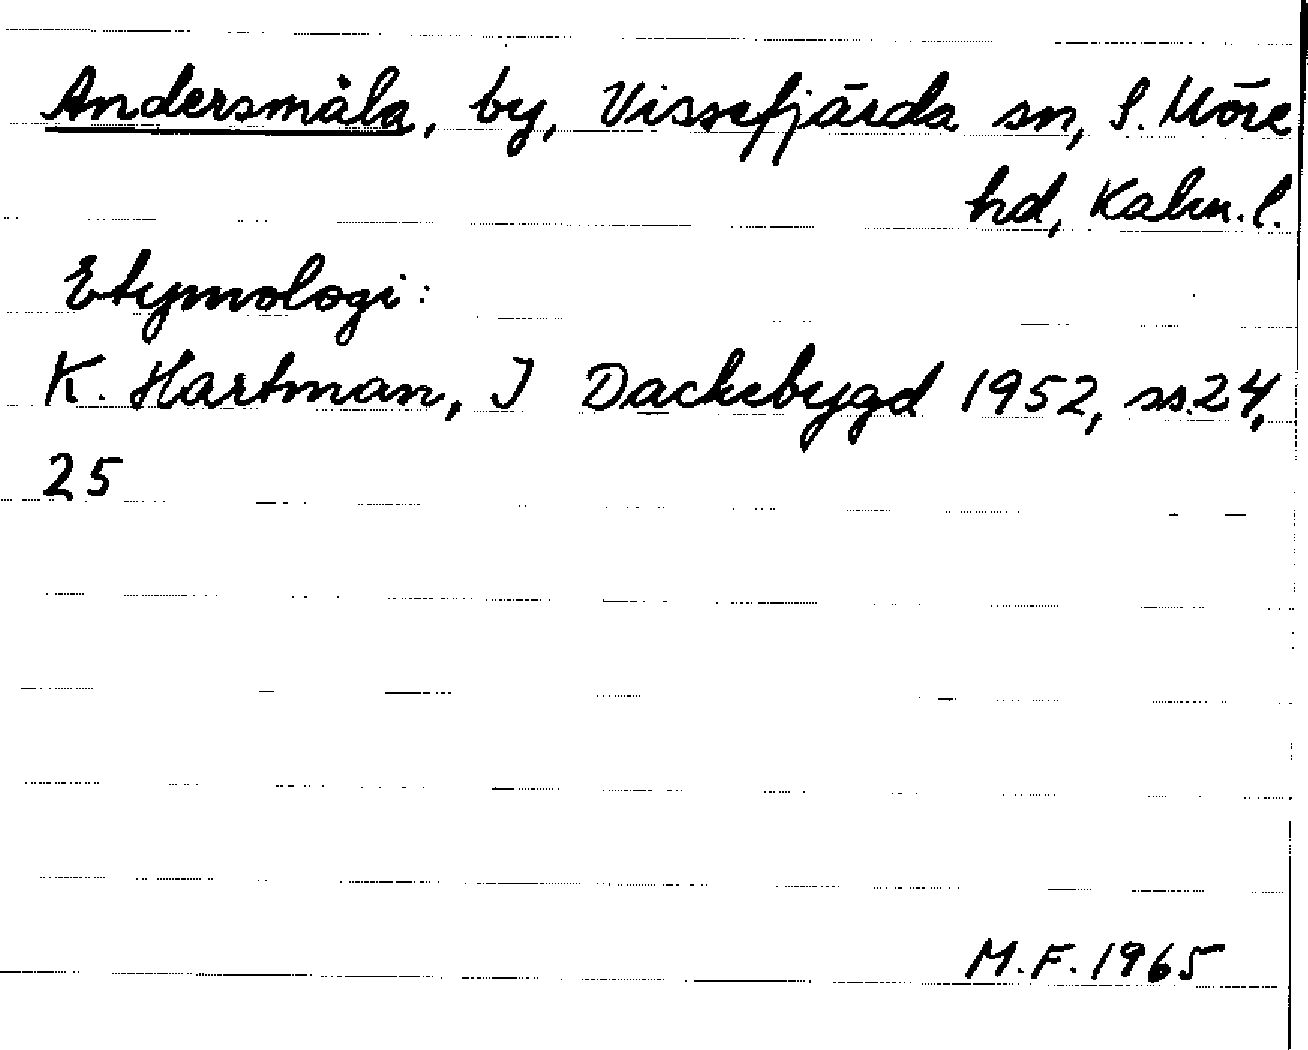 Andersmåla, by, Vissefjärda sn, S. Möre
hd, Kalm. l.
Etymologi:
K. Hartman, I Dackebygd 1952, ss. 24,
25
M.F. 1965